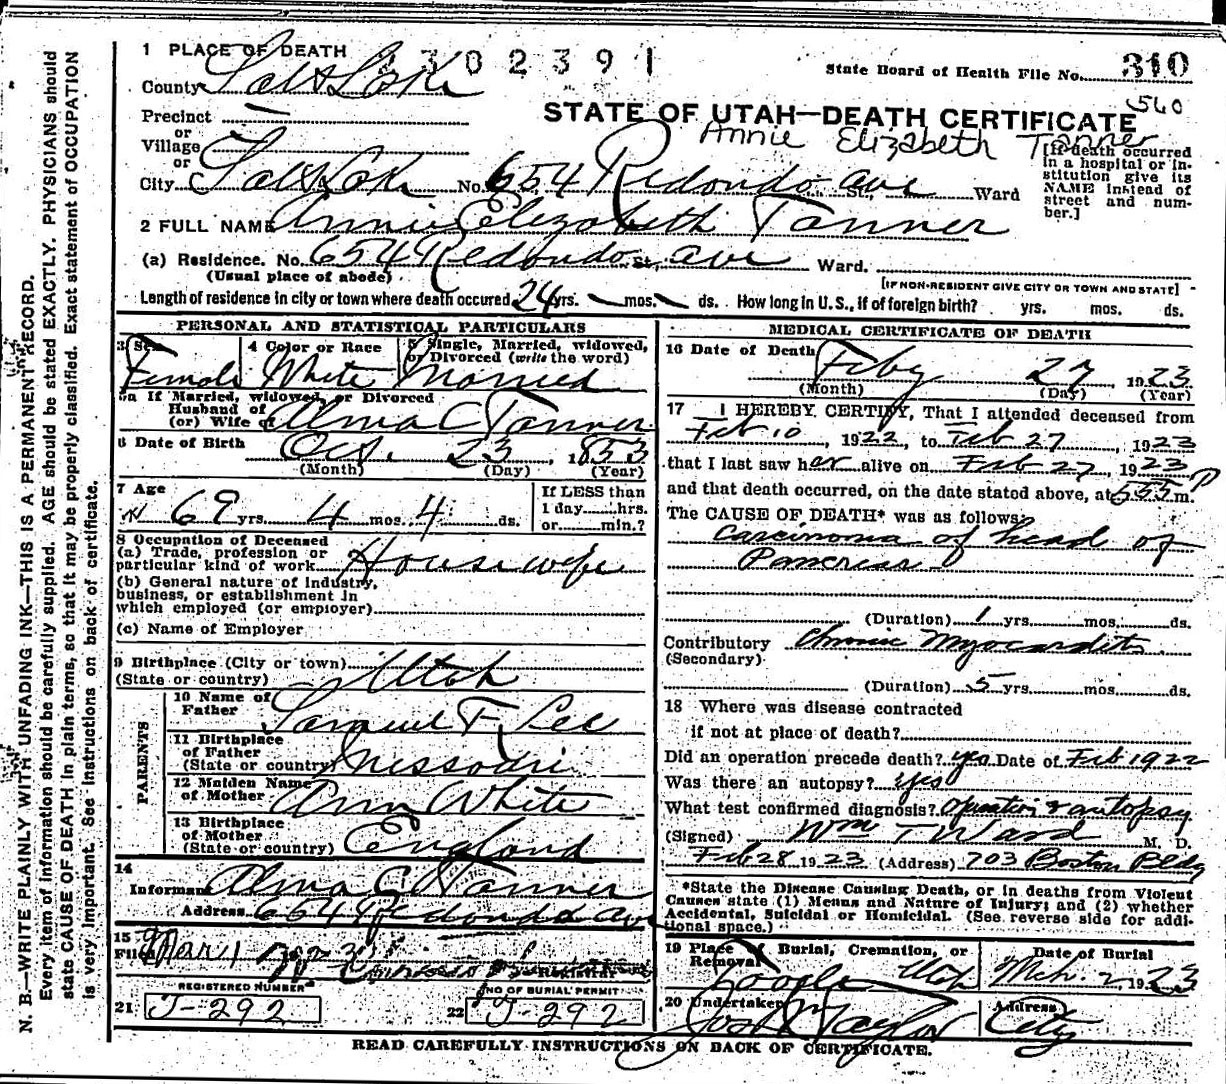 1 PLACE OF DEATH
1302391
State Board of Health File No. 310
County Salt Lake
560
STATE OF UTAH—DEATH CERTIFICATE
Precinct
or
Village
or
Annie Elizabeth Tanner
[If death occurred in a hospital or institution give its NAME instead of street and number.]
City Salt Lake No. 654 Redondo ave St., Ward
2 FULL NAME Annie Elizabeth Tanner
(a) Residence. No. 654 Redondo St., ave Ward.
(Usual place of abode)
[IF NON-RESIDENT GIVE CITY OR TOWN AND STATE]
Length of residence in city or town where death occured 24 yrs. — mos. — ds. How long in U.S., if of foreign birth? yrs. mos. ds.
PERSONAL AND STATISTICAL PARTICULARS
3 Sex
Female
4 Color or Race
White
5 Single, Married, widowed, or Divorced (write the word)
Married
5a If Married, widowed, or Divorced
Husband of
(or) Wife of Alma C Tanner
6 Date of Birth Oct. 23, 1853
(Month) (Day) (Year)
7 Age
69 yrs. 4 mos. 4 ds.
If LESS than
1 day hrs.
or min.?
8 Occupation of Deceased
(a) Trade, profession or
particular kind of work Housewife
(b) General nature of industry,
business, or establishment in
which employed (or employer)
(c) Name of Employer
9 Birthplace (City or town)
(State or country) Utah
PARENTS
10 Name of
Father Samuel F. Lee
11 Birthplace
of Father
(State or country) Missouri
12 Maiden Name
of Mother Ann White
13 Birthplace
of Mother
(State or country) England
14
Informant Alma C Tanner
Address 654 Redondo ave
15
Filed Mar 1 1923
Registrar
REGISTERED NUMBER
21 J-292
NO OF BURIAL PERMIT
22 J-292
MEDICAL CERTIFICATE OF DEATH
16 Date of Death Feby 27, 1923
(Month) (Day) (Year)
17 I HEREBY CERTIFY, That I attended deceased from
Feb 10, 1922, to Feb 27, 1923
that I last saw her alive on Feb 27, 1923
and that death occurred, on the date stated above, at 555 P m.
The CAUSE OF DEATH* was as follows:
Carcinoma of head of
Pancreas
(Duration) 1 yrs. mos. ds.
Contributory Chronic Myocarditis
(Secondary)
(Duration) 5 yrs. mos. ds.
18 Where was disease contracted
if not at place of death?
Did an operation precede death? yes Date of Feb 1922
Was there an autopsy? yes
What test confirmed diagnosis? Operation & autopsy
(Signed) Wm T Ward M. D.
Feb 28 1923 (Address) 703 Boston Bldg
*State the Disease Causing Death, or in deaths from Violent
Causes state (1) Means and Nature of Injury; and (2) whether
Accidental, Suicidal or Homicidal. (See reverse side for addi-
tional space.)
19 Place of Burial, Cremation, or
Removal Tooele Utah
Date of Burial
Mch. 2, 1923
20 Undertaker
Jos Wm Taylor
Address
City
READ CAREFULLY INSTRUCTIONS ON BACK OF CERTIFICATE.
N. B.—WRITE PLAINLY WITH UNFADING INK—THIS IS A PERMANENT RECORD.
Every item of information should be carefully supplied. AGE should be stated EXACTLY. PHYSICIANS should
state CAUSE OF DEATH in plain terms, so that it may be properly classified. Exact statement of OCCUPATION
is very important. See instructions on back of certificate.